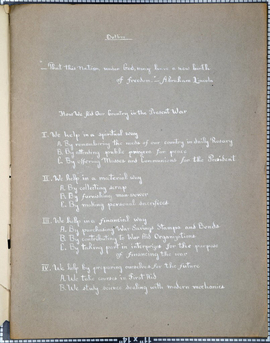 Outline
"—That this Nation, under God, may have a new birth
of freedom." Abraham Lincoln
How We Aid Our Country in the Present War
I. We help in a spiritual way
A. By remembering the needs of our country in daily Rosary
B. By attending public prayers for peace
C. By offering Masses and Communions for the President
II. We help in a material way
A. By collecting scrap
B. By furnishing man power
C. By making personal sacrifices
III. We help in a financial way
A. By purchasing War Savings Stamps and Bonds
B. By contributing to War Aid Organizations
C. By taking part in enterprises for the purpose
of financing the war
IV. We help by preparing ourselves for the future
A. We take courses in First Aid
B. We study science dealing with modern mechanics
11" x 14"